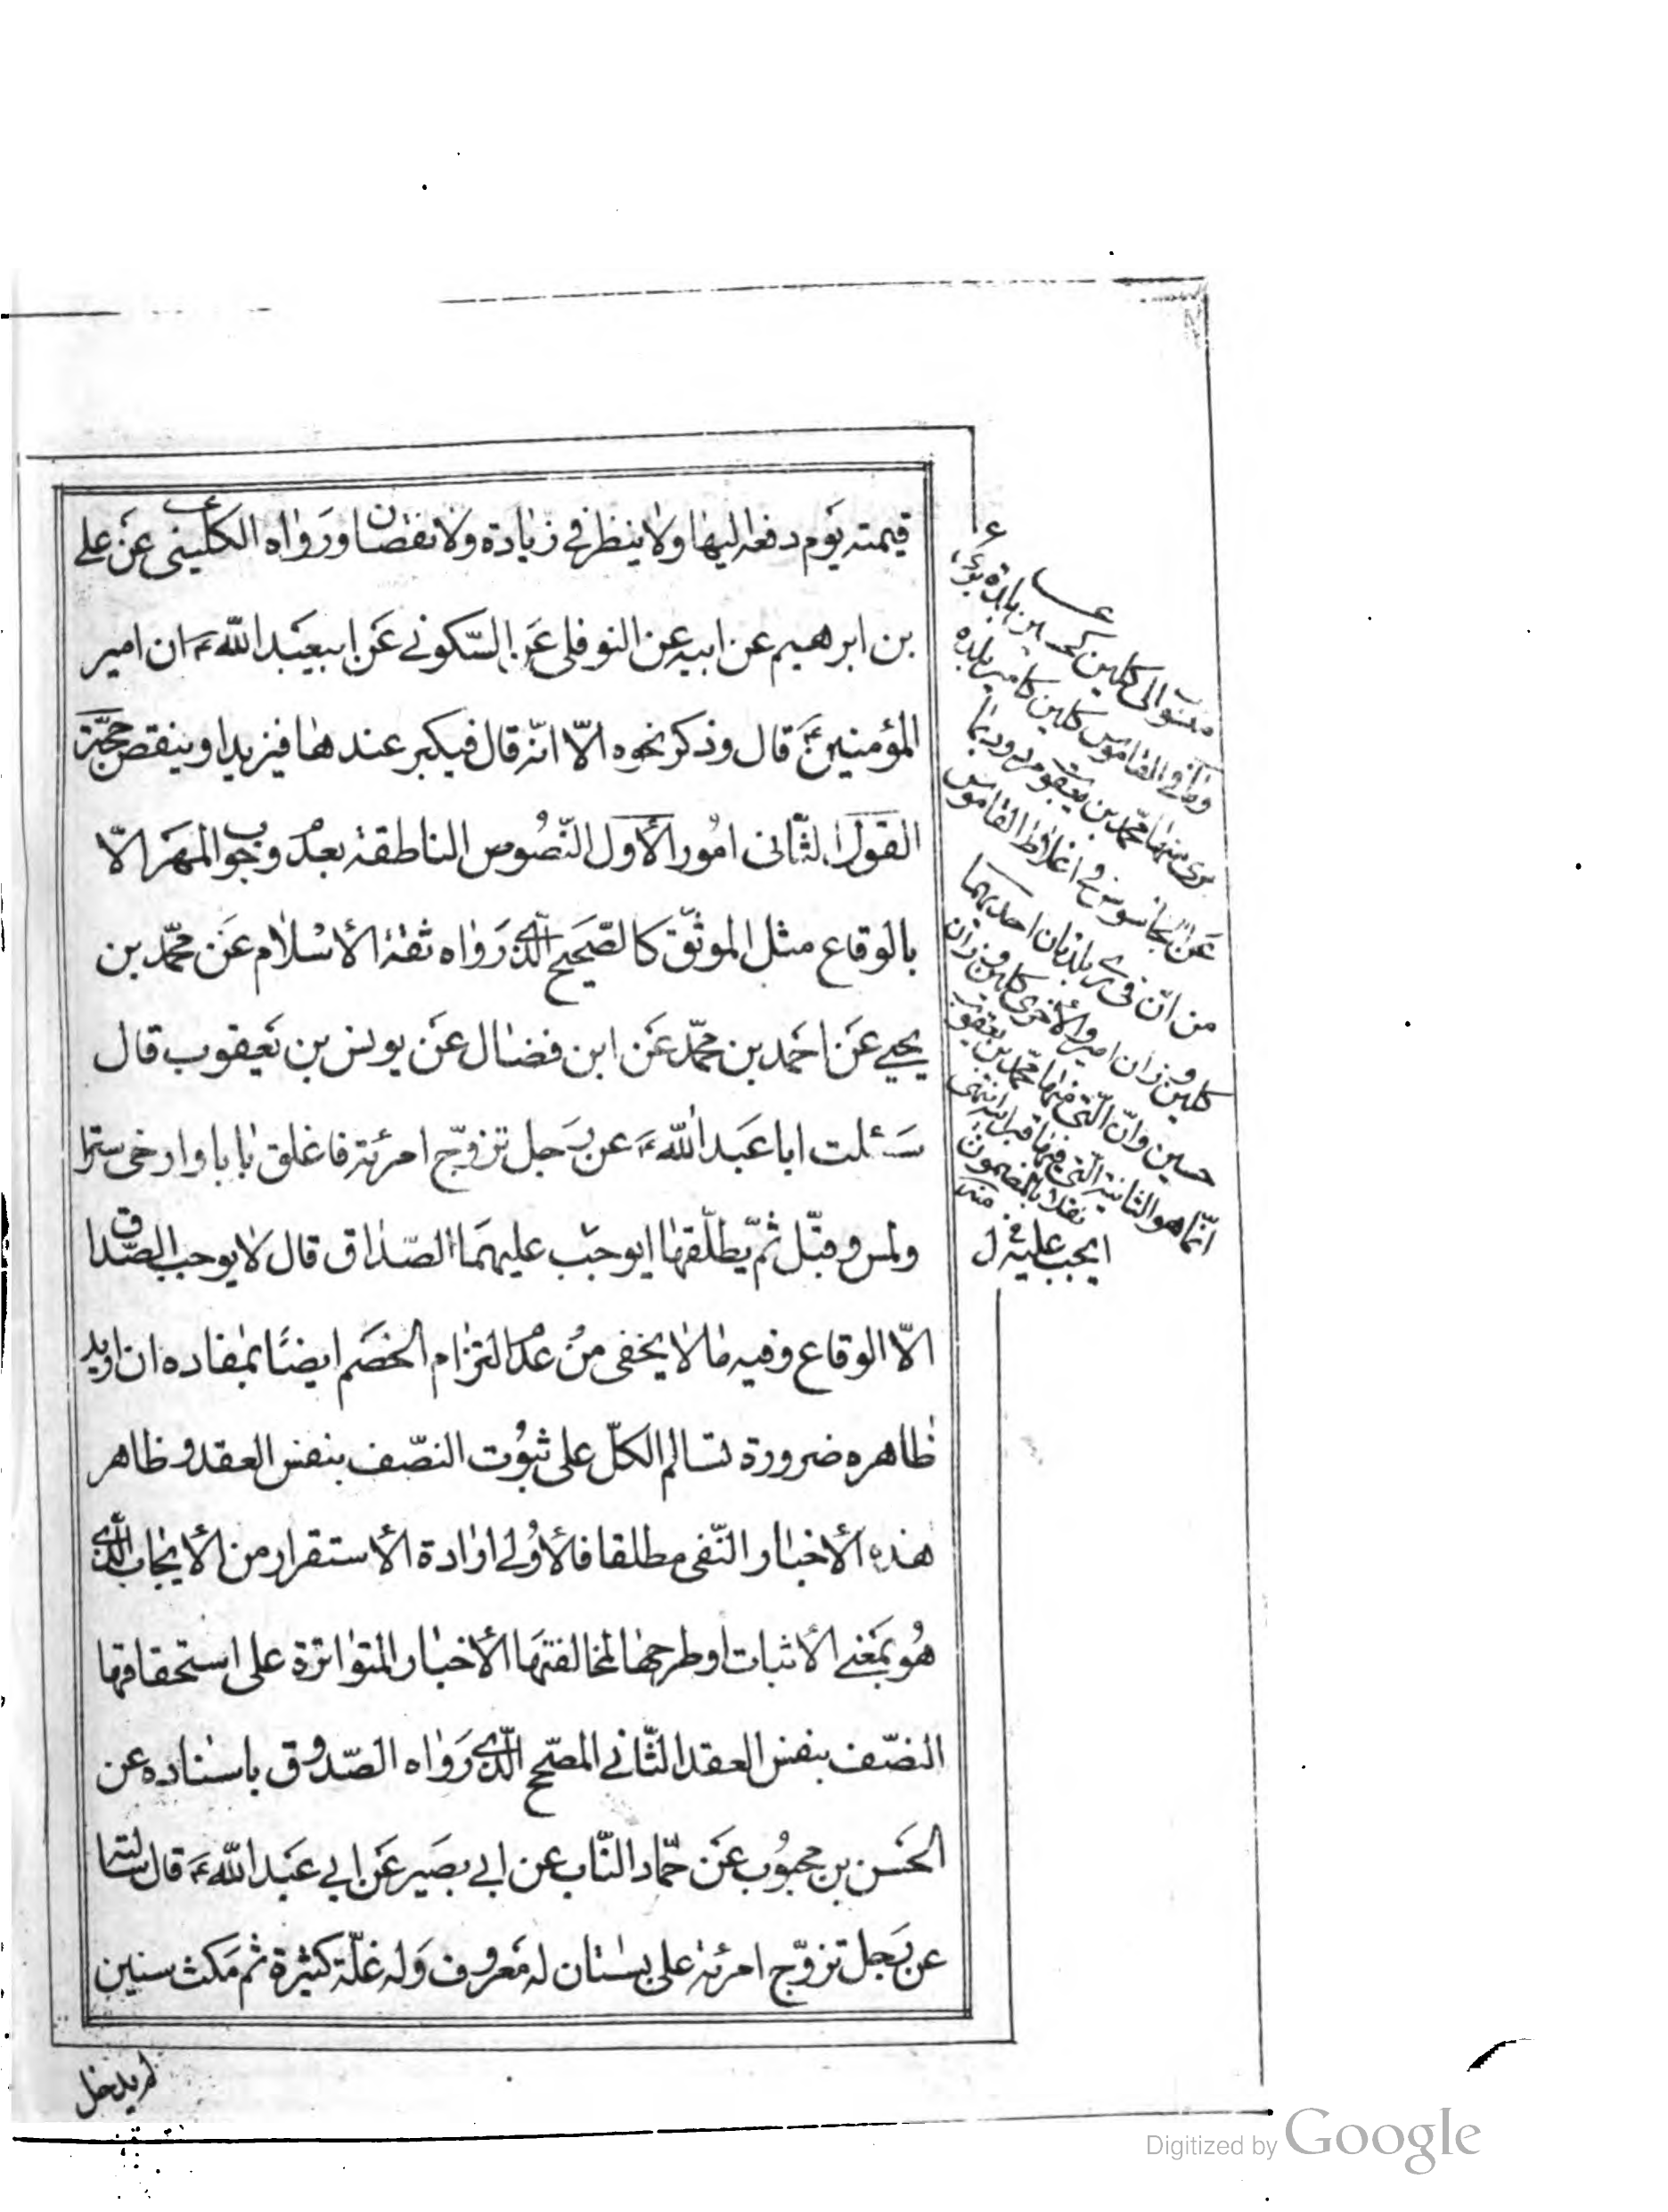 قيمته يوم دفعه اليها ولا ينظر في زيادة ولا نقصان ورواه الكليني عن علي
بن ابرهيم عن ابيه عن النوفلي عن السكوني عن ابيعبد الله ان امير
المؤمنين قال وذكر نحوه الّا انّه قال فيكبر عندها فيزيد او ينقص حجّة
القول الثّانى امور الأول النّصوص الناطقة بعدم وجوب المهر الّا
بالوقاع مثل الموثّق كالصّحيح الّذى رواه ثقة الأسلام عن محمّد بن
يحيى عن احمد بن محمّد عن ابن فضال عن يونس بن يعقوب قال
سئلت ابا عبد الله عن رجل تزوّج امرئة فاغلق بابا وارخى سترا
ولمس وقبّل ثمّ يطلّقها ايوجب عليهما الصّداق قال لا يوجب الصّداق
الّا الوقاع وفيه ما لا يخفى من عدم التزام الخصم ايضًا بمفاده ان اريد
ظاهره ضرورة تسالم الكلّ على ثبوت النصّف بنفس العقد وظاهر
هذه الأخبار النّفى مطلقا فالأولى ارادة الأستقرار من الأيجاب الّذى
هو بمعنى الأثبات او طرحها لمخالفتها الأخبار المتواترة على استحقاقها
النصّف بنفس العقد الثّاني المصحّح الّذى رواه الصّدوق باسناده عن
الحسن بن محبوب عن حمّاد النّاب عن ابي بصير عن ابي عبد الله قال سالته
عن رجل تزوّج امرئة على بستان له معروف وله غلّة كثيرة ثم مكث سنين
لم يدخل
منسوب الى كلين
وما في القاموس كلين كامير بلدة
برى منها محمّد بن يعقوب
عن الجاسوس في اغلاط القاموس
من انّ فى رى بلدتان احديهما
كلين وزان امير والأخرى كلين وزان
حسين وانّ الّتى منها محمّد بن يعقوب
انّما هو الثانية الّتي فيها قبر ابيه انتهى
نقلا بالمضمون منه
ايجب عليه
Digitized by Google